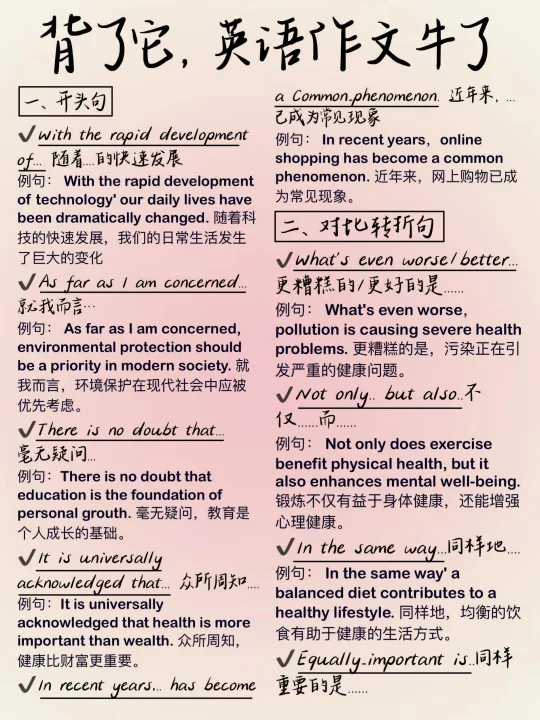 背了它，英语作文牛了
一、开头句
✔With the rapid development
of... 随着....的快速发展
例句： With the rapid development
of technology' our daily lives have
been dramatically changed. 随着科
技的快速发展，我们的日常生活发生
了巨大的变化
✔As far as I am concerned...
就我而言...
例句： As far as I am concerned,
environmental protection should
be a priority in modern society. 就
我而言，环境保护在现代社会中应被
优先考虑。
✔There is no doubt that...
毫无疑问...
例句：There is no doubt that
education is the foundation of
personal grouth. 毫无疑问，教育是
个人成长的基础。
✔It is universally
acknowledged that... 众所周知....
例句：It is universally
acknowledged that health is more
important than wealth. 众所周知，
健康比财富更重要。
✔In recent years... has become
a Common.phenomenon. 近年来，...
已成为常见现象
例句： In recent years，online
shopping has become a common
phenomenon. 近年来，网上购物已成
为常见现象。
二、对比转折句
✔What's even worse/better...
更糟糕的/更好的是......
例句： What's even worse，
pollution is causing severe health
problems. 更糟糕的是，污染正在引
发严重的健康问题。
✔Not only.. but also..不
仅......而......
例句： Not only does exercise
benefit physical health, but it
also enhances mental well-being.
锻炼不仅有益于身体健康，还能增强
心理健康。
✔In the same way...同样地....
例句： In the same way' a
balanced diet contributes to a
healthy lifestyle. 同样地，均衡的饮
食有助于健康的生活方式。
✔Equally.important is..同样
重要的是......